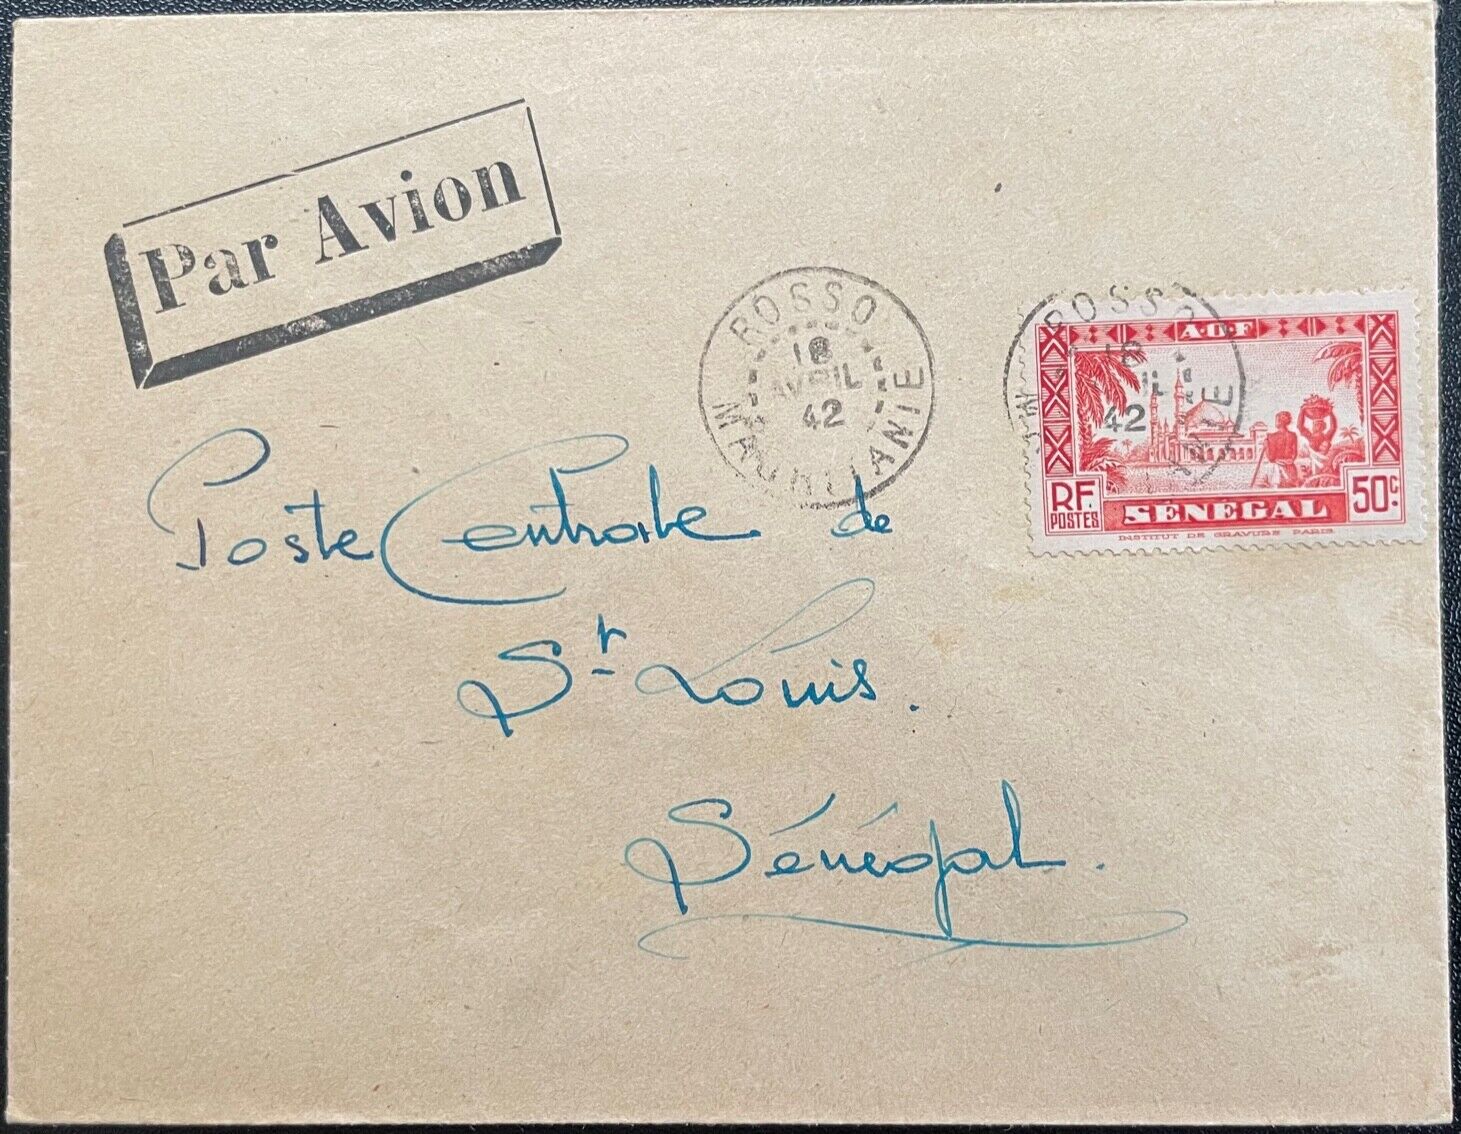 Par Avion
ROSSO
18
AVRIL
42
MAURITANIE
ROSSO
18
IL
42
M
NIE
AOF
RF
POSTES
SÉNÉGAL
50c.
INSTITUT DE GRAVURE PARIS
Poste Centrale de
St. Louis.
Sénégal.